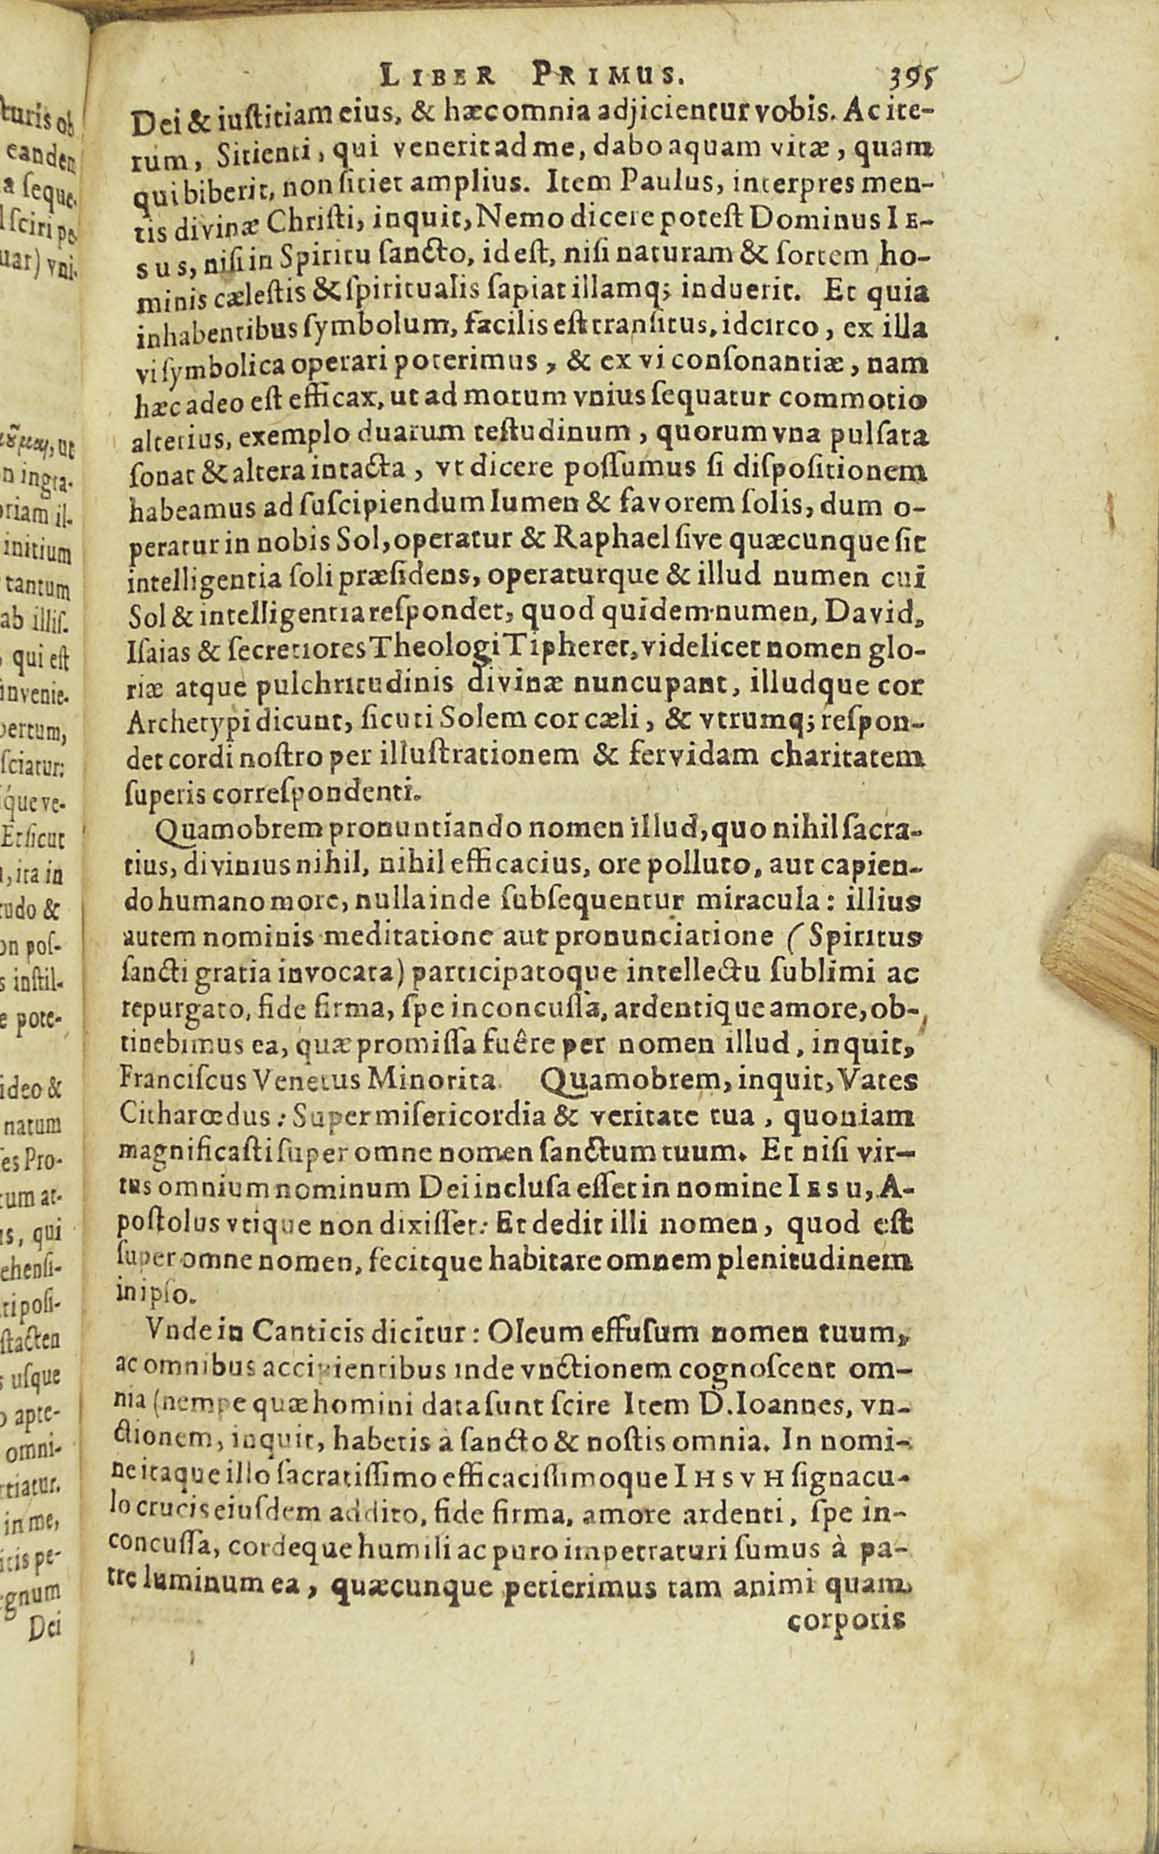 LIBER PRIMUS. 395
Dei & iuſtitiam eius, & hæc omnia adjicientur vobis. Ac ite-
rum, Sitienti, qui venerit ad me, dabo aquam vitæ, quam
qui biberit, non ſitiet amplius. Item Paulus, interpres men-
tis divinæ Chriſti, inquit, Nemo dicere poteſt Dominus IE-
sus, niſi in Spiritu ſancto, id eſt, niſi naturam & ſortem ho-
minis cæleſtis & ſpiritualis ſapiat illamq; induerit. Et quia
inhabentibus ſymbolum, facilis eſt tranſitus, idcirco, ex illa
vi ſymbolica operari poterimus, & ex vi conſonantiæ, nam
hæc adeo eſt efficax, ut ad motum vnius ſequatur commotio
alterius, exemplo duarum teſtudinum, quorum vna pulſata
ſonat & altera intacta, vt dicere poſſumus ſi diſpoſitionem
habeamus ad ſuſcipiendum lumen & favorem ſolis, dum o-
peratur in nobis Sol, operatur & Raphael ſive quæcunque ſit
intelligentia ſoli præſidens, operaturque & illud numen cui
Sol & intelligentia reſpondet, quod quidem numen, David,
Iſaias & ſecretiores Theologi Tipheret, videlicet nomen glo-
riæ atque pulchritudinis divinæ nuncupant, illudque cor
Archetypi dicunt, ſicuti Solem cor cæli, & vtrumq; reſpon-
det cordi noſtro per illuſtrationem & fervidam charitatem
ſuperis correſpondenti.
Quamobrem pronuntiando nomen illud, quo nihil ſacra-
tius, divinius nihil, nihil efficacius, ore polluto, aut capien-
do humano more, nulla inde ſubſequentur miracula: illius
autem nominis meditatione aut pronunciatione (Spiritus
ſancti gratia invocata) participatoque intellectu ſublimi ac
repurgato, fide firma, ſpe inconcuſſa, ardentique amore, ob-
tinebimus ea, quæ promiſſa fuêre per nomen illud, inquit,
Franciſcus Venetus Minorita. Quamobrem, inquit, Vates
Citharœdus: Super miſericordia & veritate tua, quoniam
magnificaſti ſuper omne nomen ſanctum tuum. Et niſi vir-
tus omnium nominum Dei incluſa eſſet in nomine IESU, A-
poſtolus vtique non dixiſſet: Et dedit illi nomen, quod eſt
ſuper omne nomen, fecitque habitare omnem plenitudinem
in ipſo.
Vnde in Canticis dicitur: Oleum effuſum nomen tuum,
ac omnibus accipientibus inde vnctionem cognoſcent om-
nia (nempe quæ homini data ſunt ſcire Item D. Ioannes, vn-
ctionem, inquit, habetis à ſancto & noſtis omnia. In nomi-
ne itaque illo ſacratiſſimo efficaciſſimoque IHSVH ſignacu-
lo crucis eiuſdem addito, fide firma, amore ardenti, ſpe in-
concuſſa, cordeque humili ac puro impetraturi ſumus à pa-
tre luminum ea, quæcunque petierimus tam animi quam
corporis